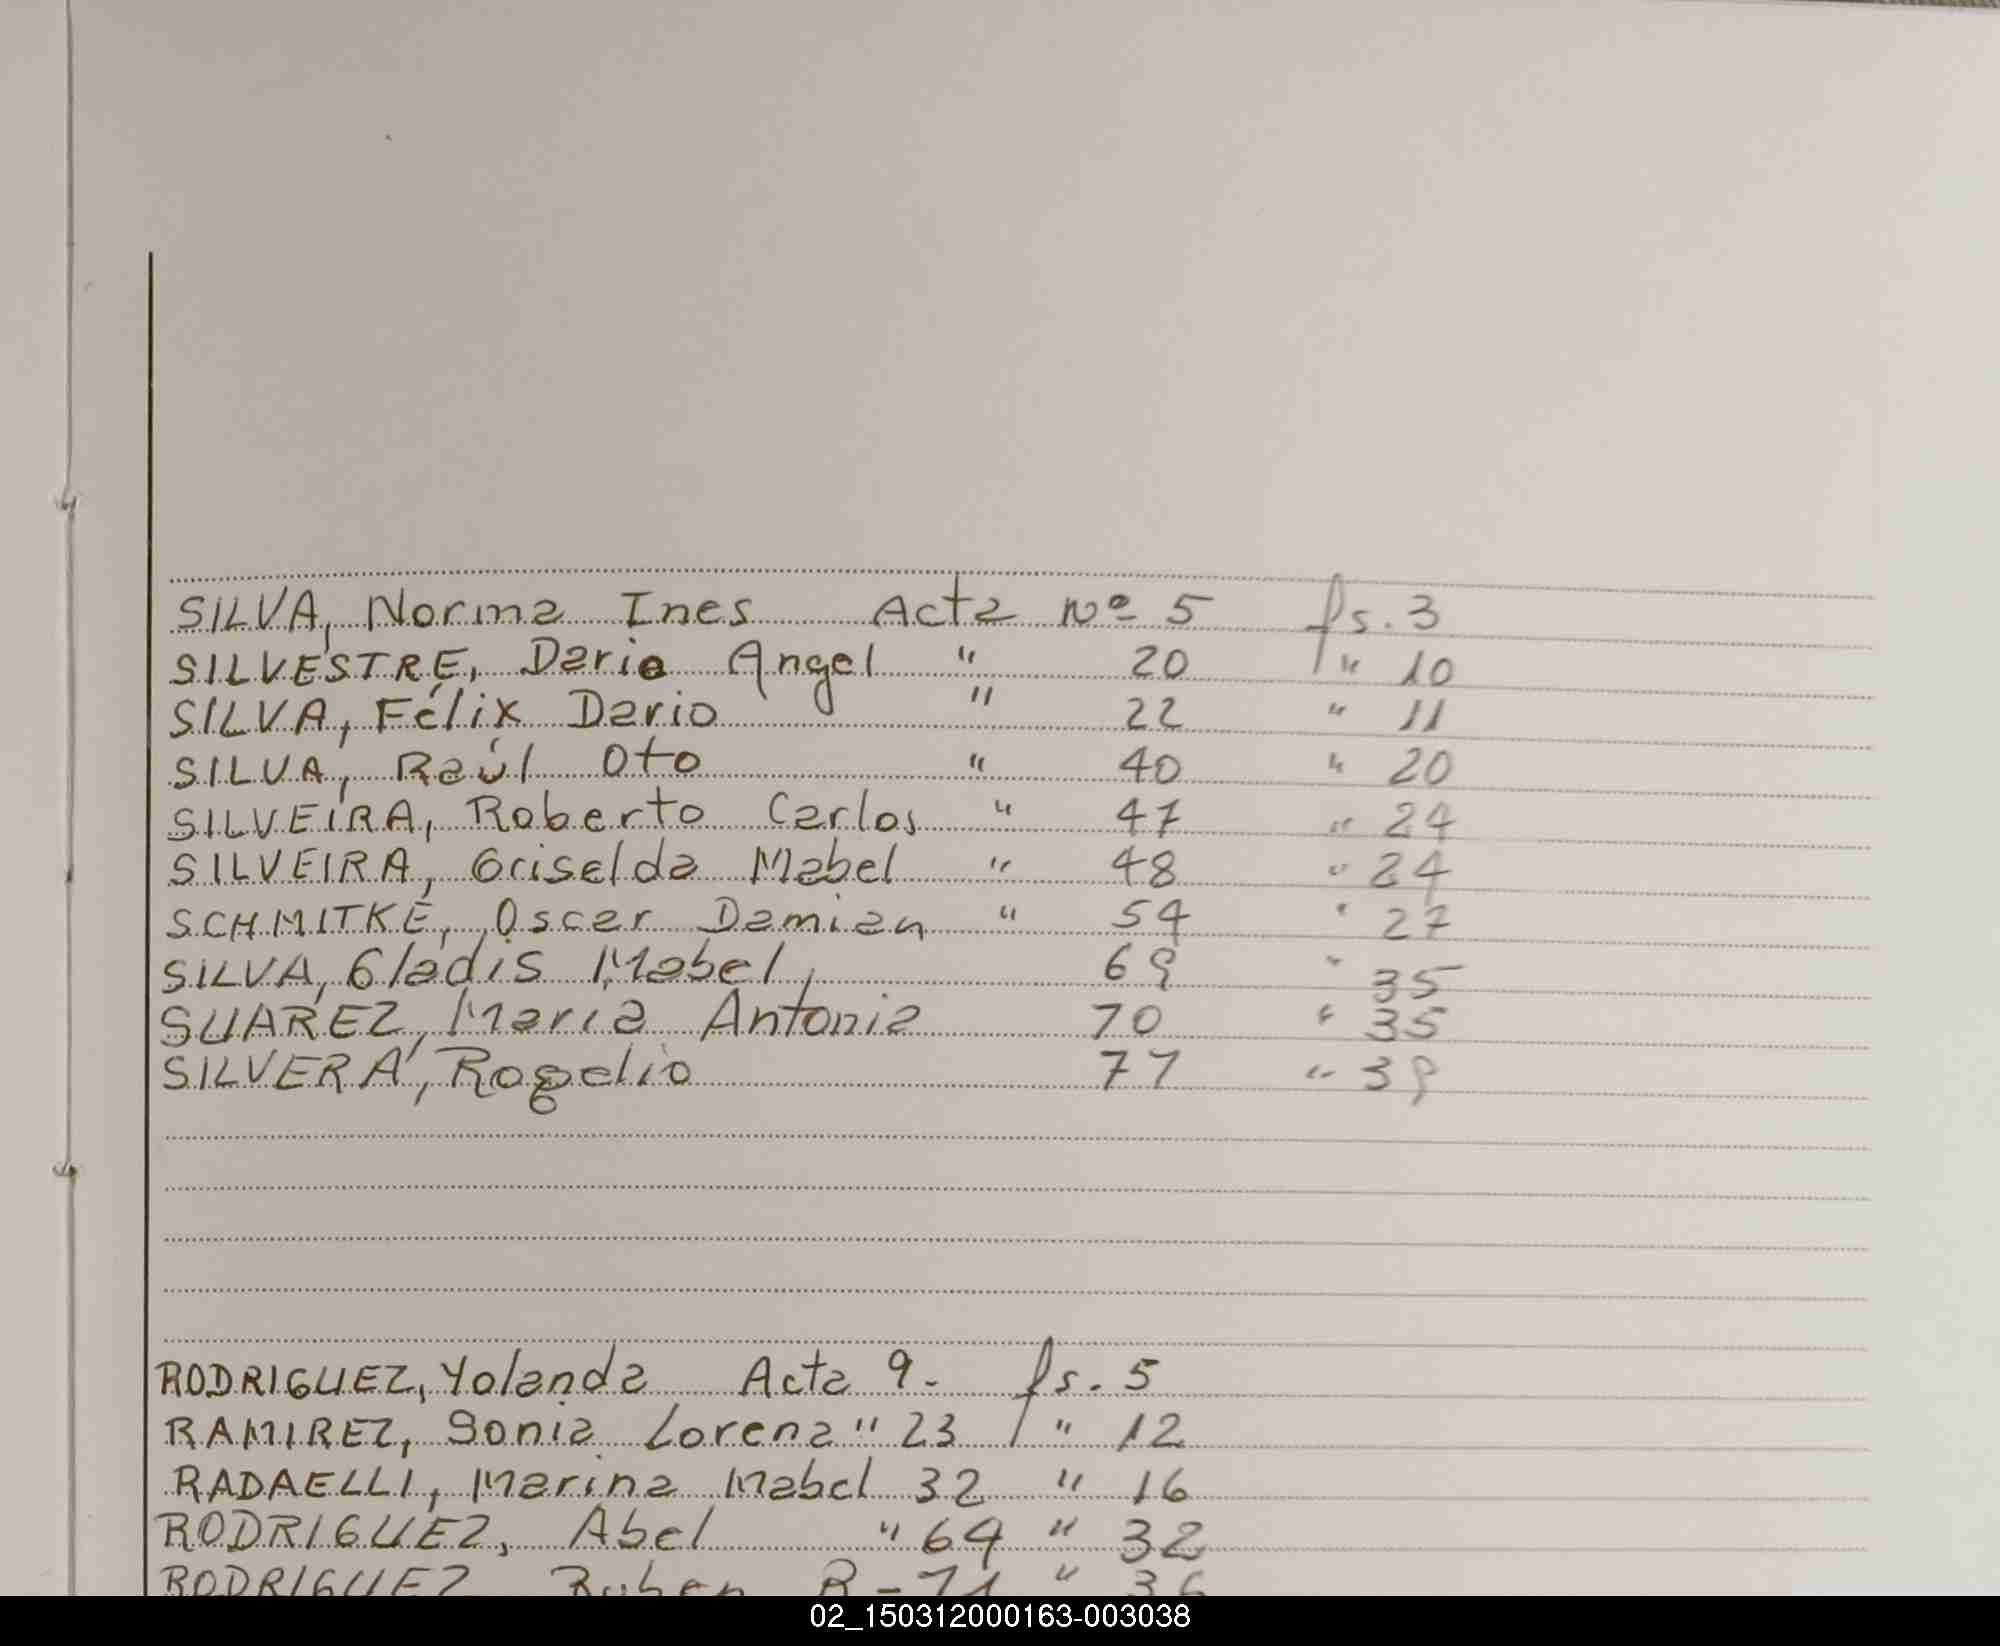 SILVA, Norma Ines Acta Nº 5 fs. 3
SILVESTRE, Dario Angel " 20 " 10
SILVA, Félix Dario " 22 " 11
SILVA, Raúl Oto " 40 " 20
SILVEIRA, Roberto Carlos " 47 " 24
SILVEIRA, Griselda Mabel " 48 " 24
SCHMITKE, Oscar Damian " 54 " 27
SILVA, Gladis Mabel, 69 " 35
SUAREZ, Maria Antonia 70 " 35
SILVERA, Rogelio 77 " 39
RODRIGUEZ, Yolanda Acta 9. fs. 5
RAMIREZ, Sonia Lorena " 23 " 12
RADAELLI, Marina Mabel 32 " 16
RODRIGUEZ, Abel " 64 " 32
RODRIGUEZ Ruben R - 71 " 36
02_150312000163-003038